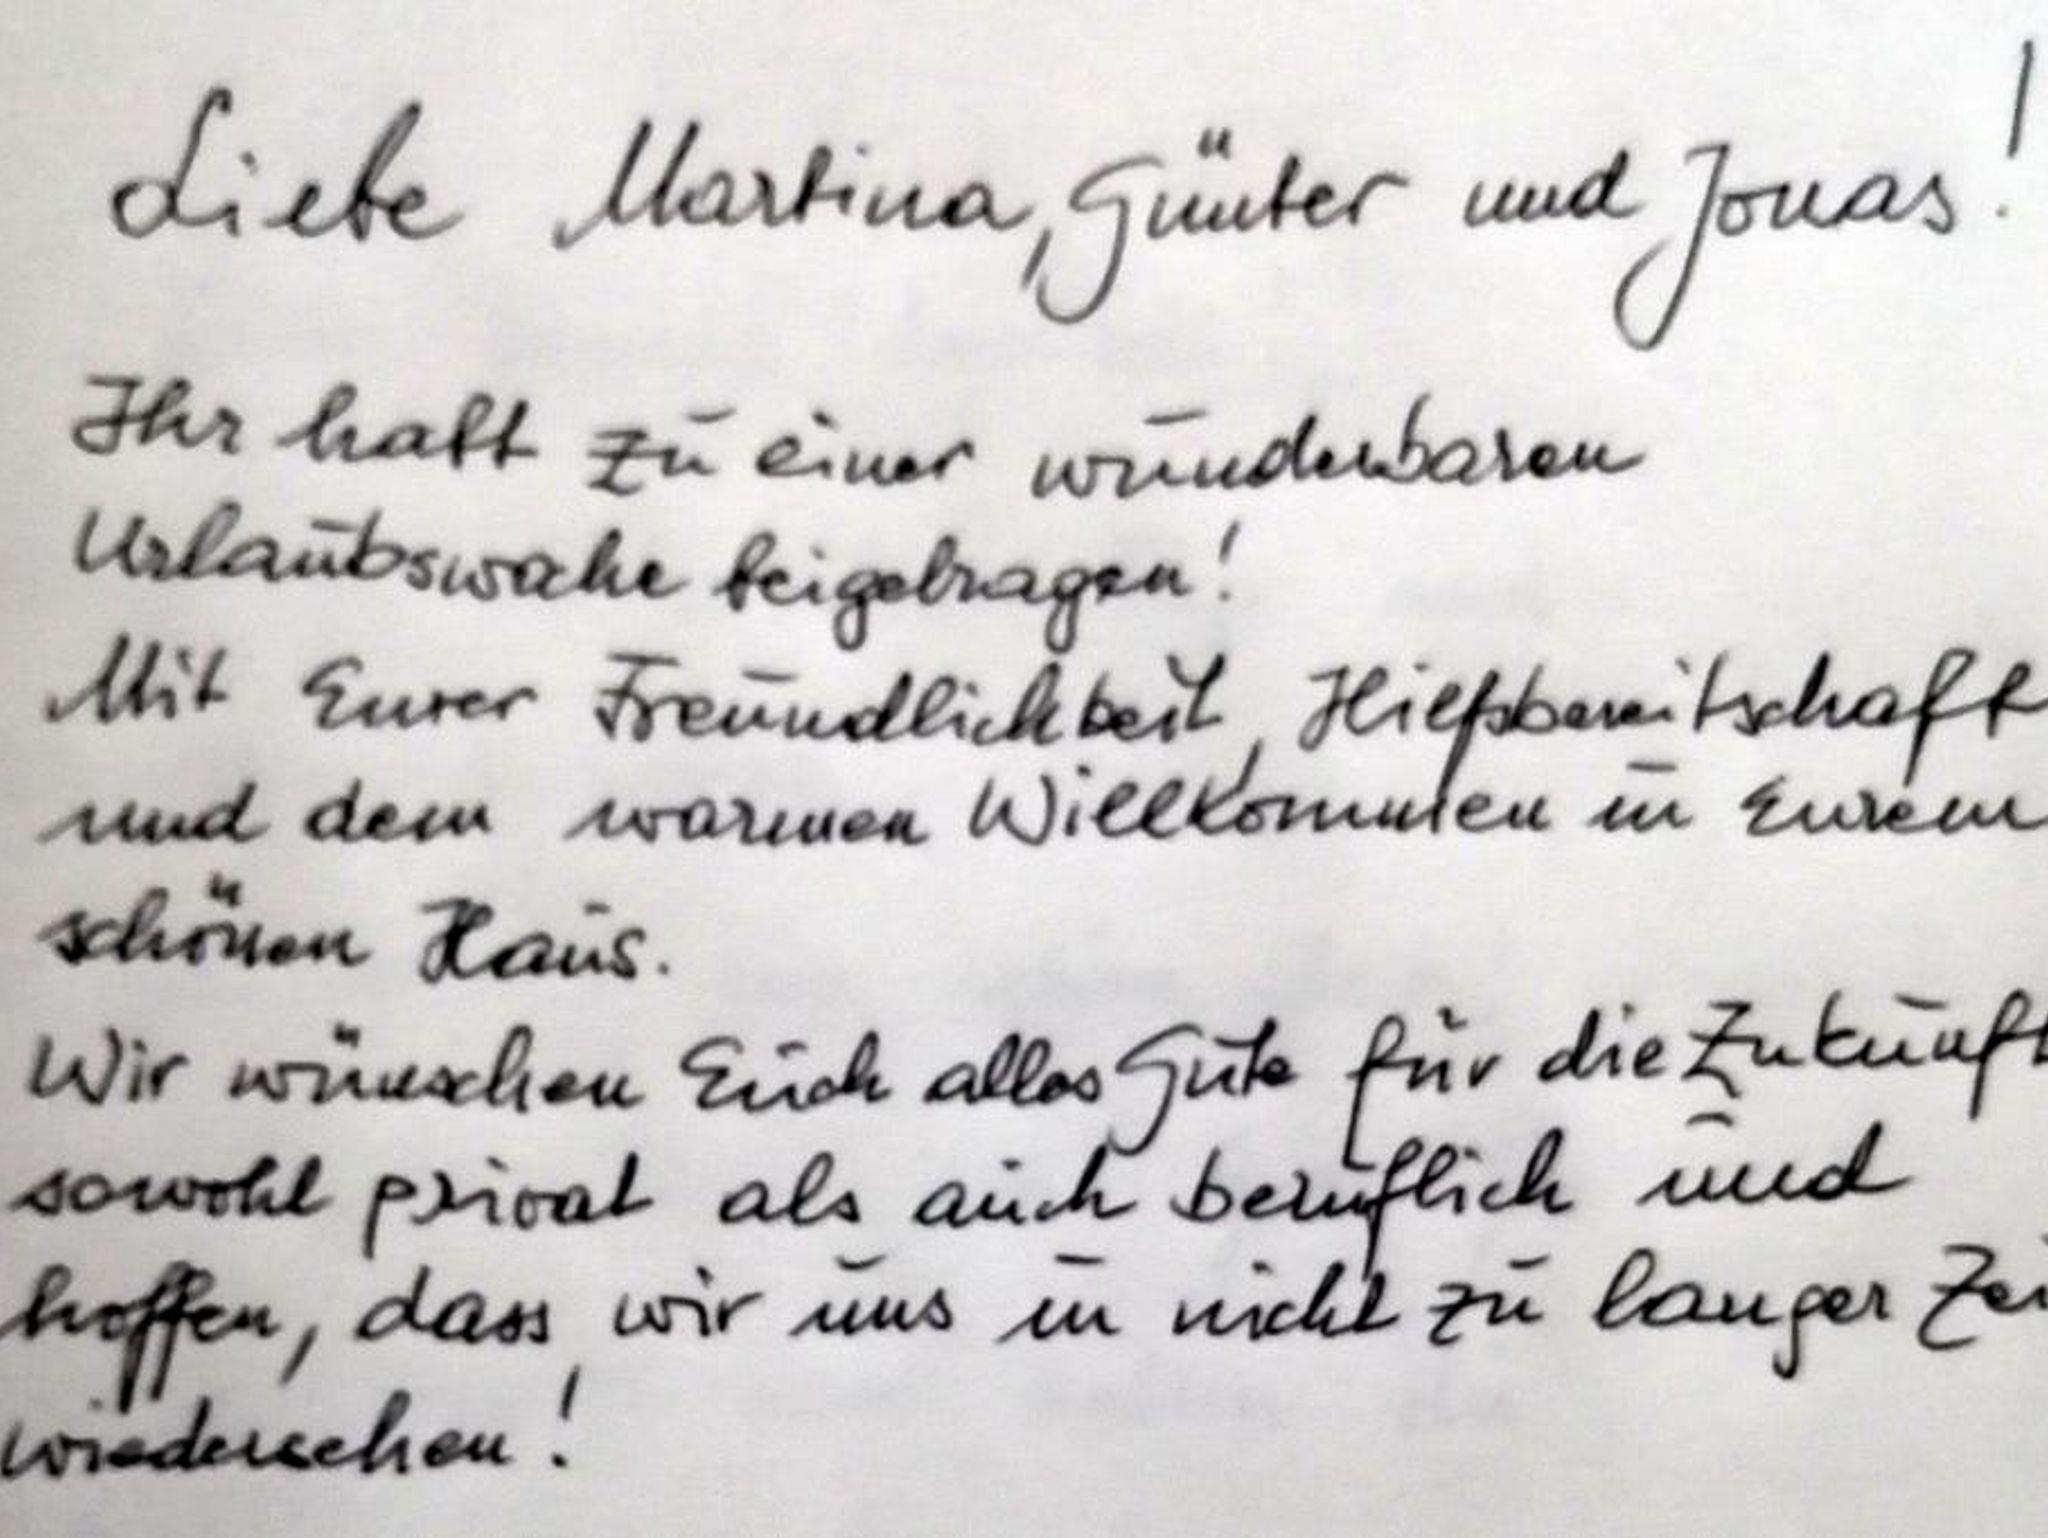 Liebe Martina, Günter und Jonas!
Ihr habt zu einer wunderbaren
Urlaubswoche beigetragen!
Mit Eurer Freundlichkeit, Hilfsbereitschaft
und dem warmen Willkommen in Eurem
schönen Haus.
Wir wünschen Euch alles Gute für die Zukunft
sowohl privat als auch beruflich und
hoffen, dass wir uns in nicht zu langer Zei
wiedersehen!